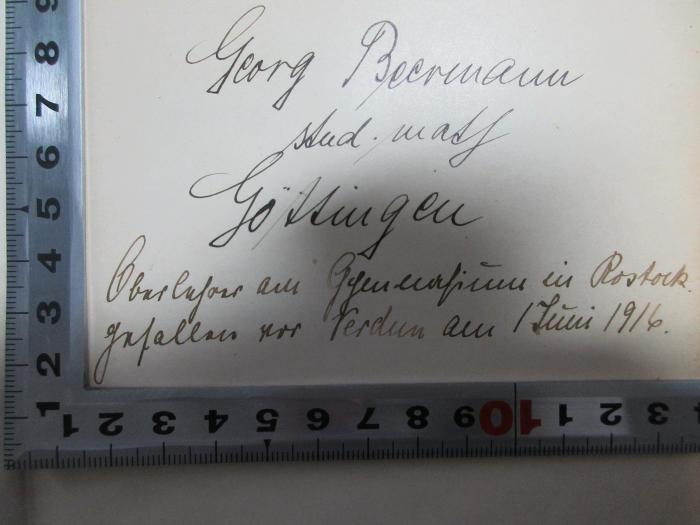 Georg Beermann
stud. math
Göttingen
Oberlehrer am Gymnasium in Rostock.
gefallen vor Verdun am 1 Juni 1916.
9 8 7 6 5 4 3 2 1
1 2 3 4 5 6 7 8 9 10 11 1 2 3